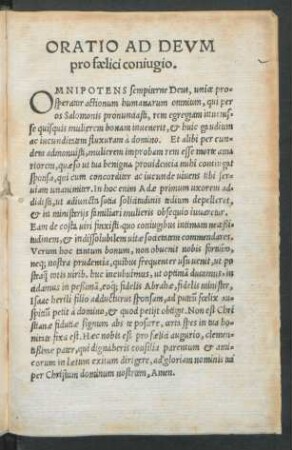 ORATIO AD DEVM
pro fœlici coniugio.
OMNIPOTENS sempiterne Deus, uniæ pro-
sperator actionum humanarum omnium, qui per
os Salomonis pronunciasti, rem egregiam inuenis-
se quisquis mulierem bonam inuenerit, & huic gaudium
ac iucunditatem fluxuram à domino. Et alibi per eun
dem admonuisti, mulierem improbam rem esse morte ama
riorem, quæso ut tua benigna prouidentia mihi contingat
sponsa, qui cum concorditer ac iucunde uiuens tibi ser
uiam unanimiter. In hoc enim Adæ primum uxorem ad
didisti, ut adiuncta socia solitudinis tædium depelleret,
& in ministerijs familiari mulieris obsequio iuuaretur.
Eam de costa uiri finxisti quo coniugibus intimam ne-
cessitudinem, & indissolubilem uitæ sodalitatem commendares.
Verum hoc tantum bonum, non obuenit nobis fortuito,
neq; nostra prudentia, quibus frequenter usu uenit, ut po
stq̃ totis uirib. huc incubuimus, ut optimã ducamus, in
cidamus in pessimã, eoq; fidelis Abrahæ, fidelis minister,
Isaac herili filio adducturus sponsam, ad puteũ fœlix au
spicium petit à domino, & quod petijt obtigit. Non est Chri
stianæ fiduciæ signum abs te poscere, satis spes in tuo ho-
mine fixa est. Hæc nobis est pro fœlici augurio, clemen-
tissime pater, qui digneberis consilia parentum & ami-
corum in lætum exitum dirigere, ad gloriam nominis tui
per Christum dominum nostrum, Amen.